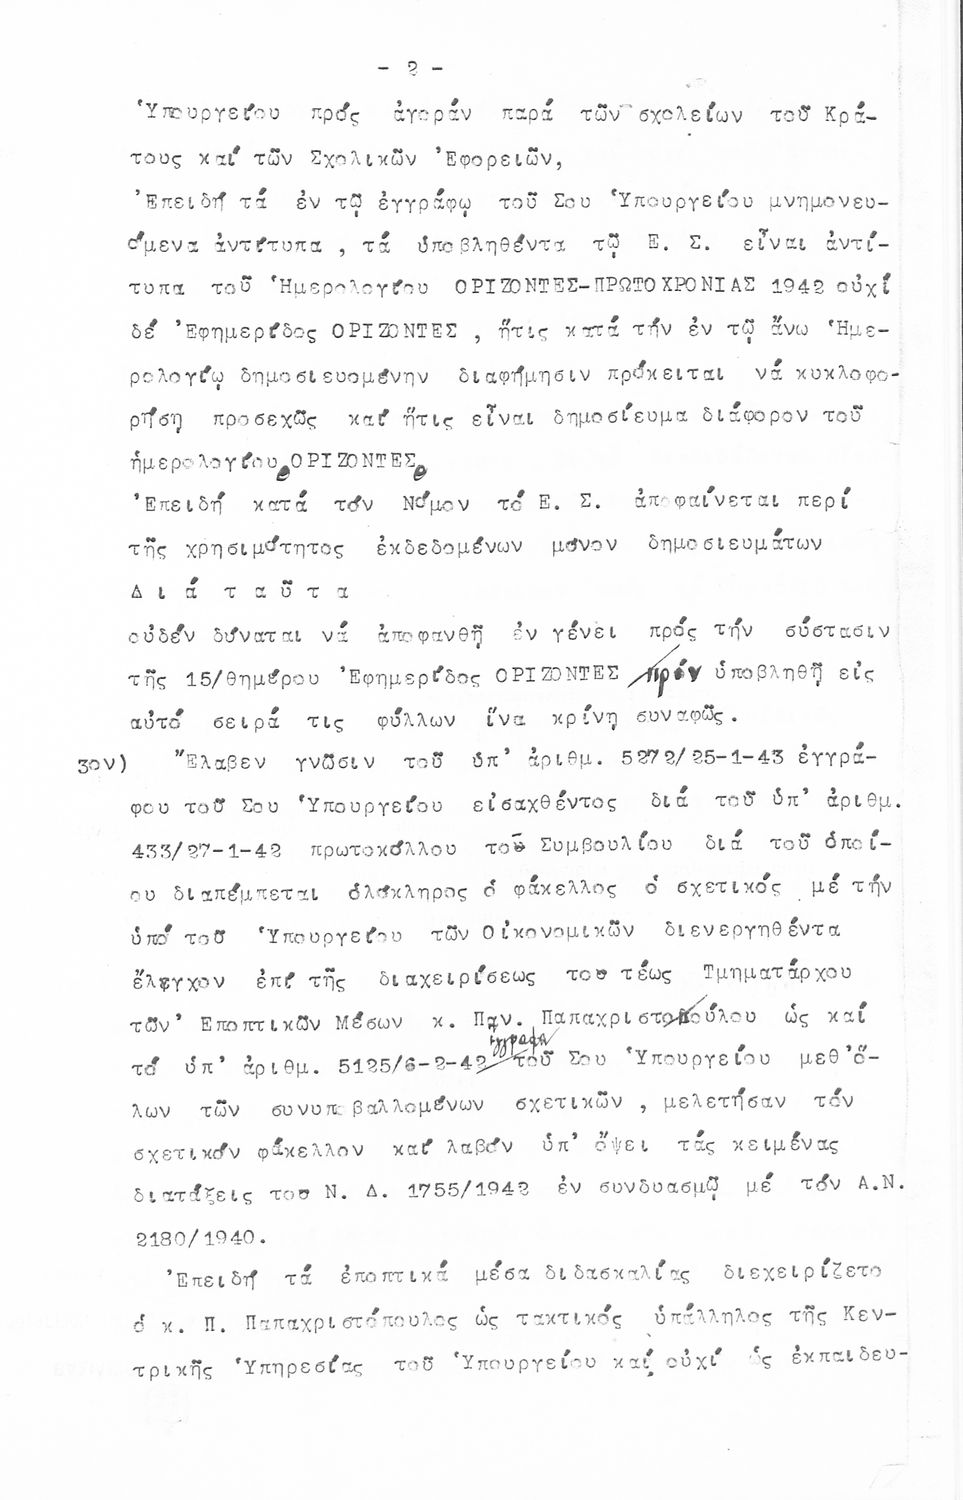 - 2 -
Ὑπουργείου πρός ἀγοράν παρά τῶν σχολείων τοῦ Κρά-
τους καί τῶν Σχολικῶν Ἐφορειῶν,
Ἐπειδή τά ἐν τῷ ἐγγράφῳ τοῦ Σου Ὑπουργείου μνημονευ-
όμενα ἀντίτυπα , τά ὑποβληθέντα τῷ Ε. Σ. εἶναι ἀντί-
τυπα τοῦ Ἡμερολογίου ΟΡΙΖΟΝΤΕΣ-ΠΡΩΤΟΧΡΟΝΙΑΣ 1942 οὐχί
δέ Ἐφημερίδος ΟΡΙΖΟΝΤΕΣ , ἥτις κατά τήν ἐν τῷ ἄνω Ἡμε-
ρολογίῳ δημοσιευομένην διαφήμησιν πρόκειται νά κυκλοφο-
ρήσῃ προσεχῶς καί ἥτις εἶναι δημοσίευμα διάφορον τοῦ
ἡμερολογίου "ΟΡΙΖΟΝΤΕΣ"
Ἐπειδή κατά τόν Νόμον τό Ε. Σ. ἀποφαίνεται περί
τῆς χρησιμότητος ἐκδεδομένων μόνον δημοσιευμάτων
Δ ι ά τ α ῦ τ α
οὐδέν δύναται νά ἀποφανθῇ ἐν γένει πρός τήν σύστασιν
τῆς 15/θημέρου Ἐφημερίδος ΟΡΙΖΟΝΤΕΣ πρίν ὑποβληθῇ εἰς
αὐτό σειρά τις φύλλων ἵνα κρίνῃ συναφῶς.
3ον) Ἔλαβεν γνῶσιν τοῦ ὑπ' ἀριθμ. 5272/25-1-43 ἐγγρά-
φου τοῦ Σου Ὑπουργείου εἰσαχθέντος διά τοῦ ὑπ' ἀριθμ.
433/27-1-42 πρωτοκόλλου τοῦ Συμβουλίου διά τοῦ ὁποί-
ου διαπέμπεται ὁλόκληρος ὁ φάκελλος ὁ σχετικός μέ τήν
ὑπό τοῦ Ὑπουργείου τῶν Οἰκονομικῶν διενεργηθέντα
ἔλεγχον ἐπί τῆς διαχειρίσεως του τέως Τμηματάρχου
τῶν' Εποπτικῶν Μέσων κ. Παν. Παπαχριστοπούλου ὡς καί
τό ὑπ' ἀριθμ. 5125/6-2-42 ἔγγραφον τοῦ Σου Ὑπουργείου μεθ'ὅ-
λων τῶν συνυποβαλλομένων σχετικῶν , μελετήσαν τόν
σχετικόν φάκελλον καί λαβόν ὑπ' ὄψει τάς κειμένας
διατάξεις του Ν. Δ. 1755/1942 ἐν συνδυασμῷ μέ τόν Α.Ν.
2180/1940.
Ἐπειδή τά ἐποπτικά μέσα διδασκαλίας διεχειρίζετο
ὁ κ. Π. Παπαχριστόπουλος ὡς τακτικός ὑπάλληλος τῆς Κεν-
τρικῆς Ὑπηρεσίας τοῦ Ὑπουργείου καί οὐχί ὡς ἐκπαιδευ-